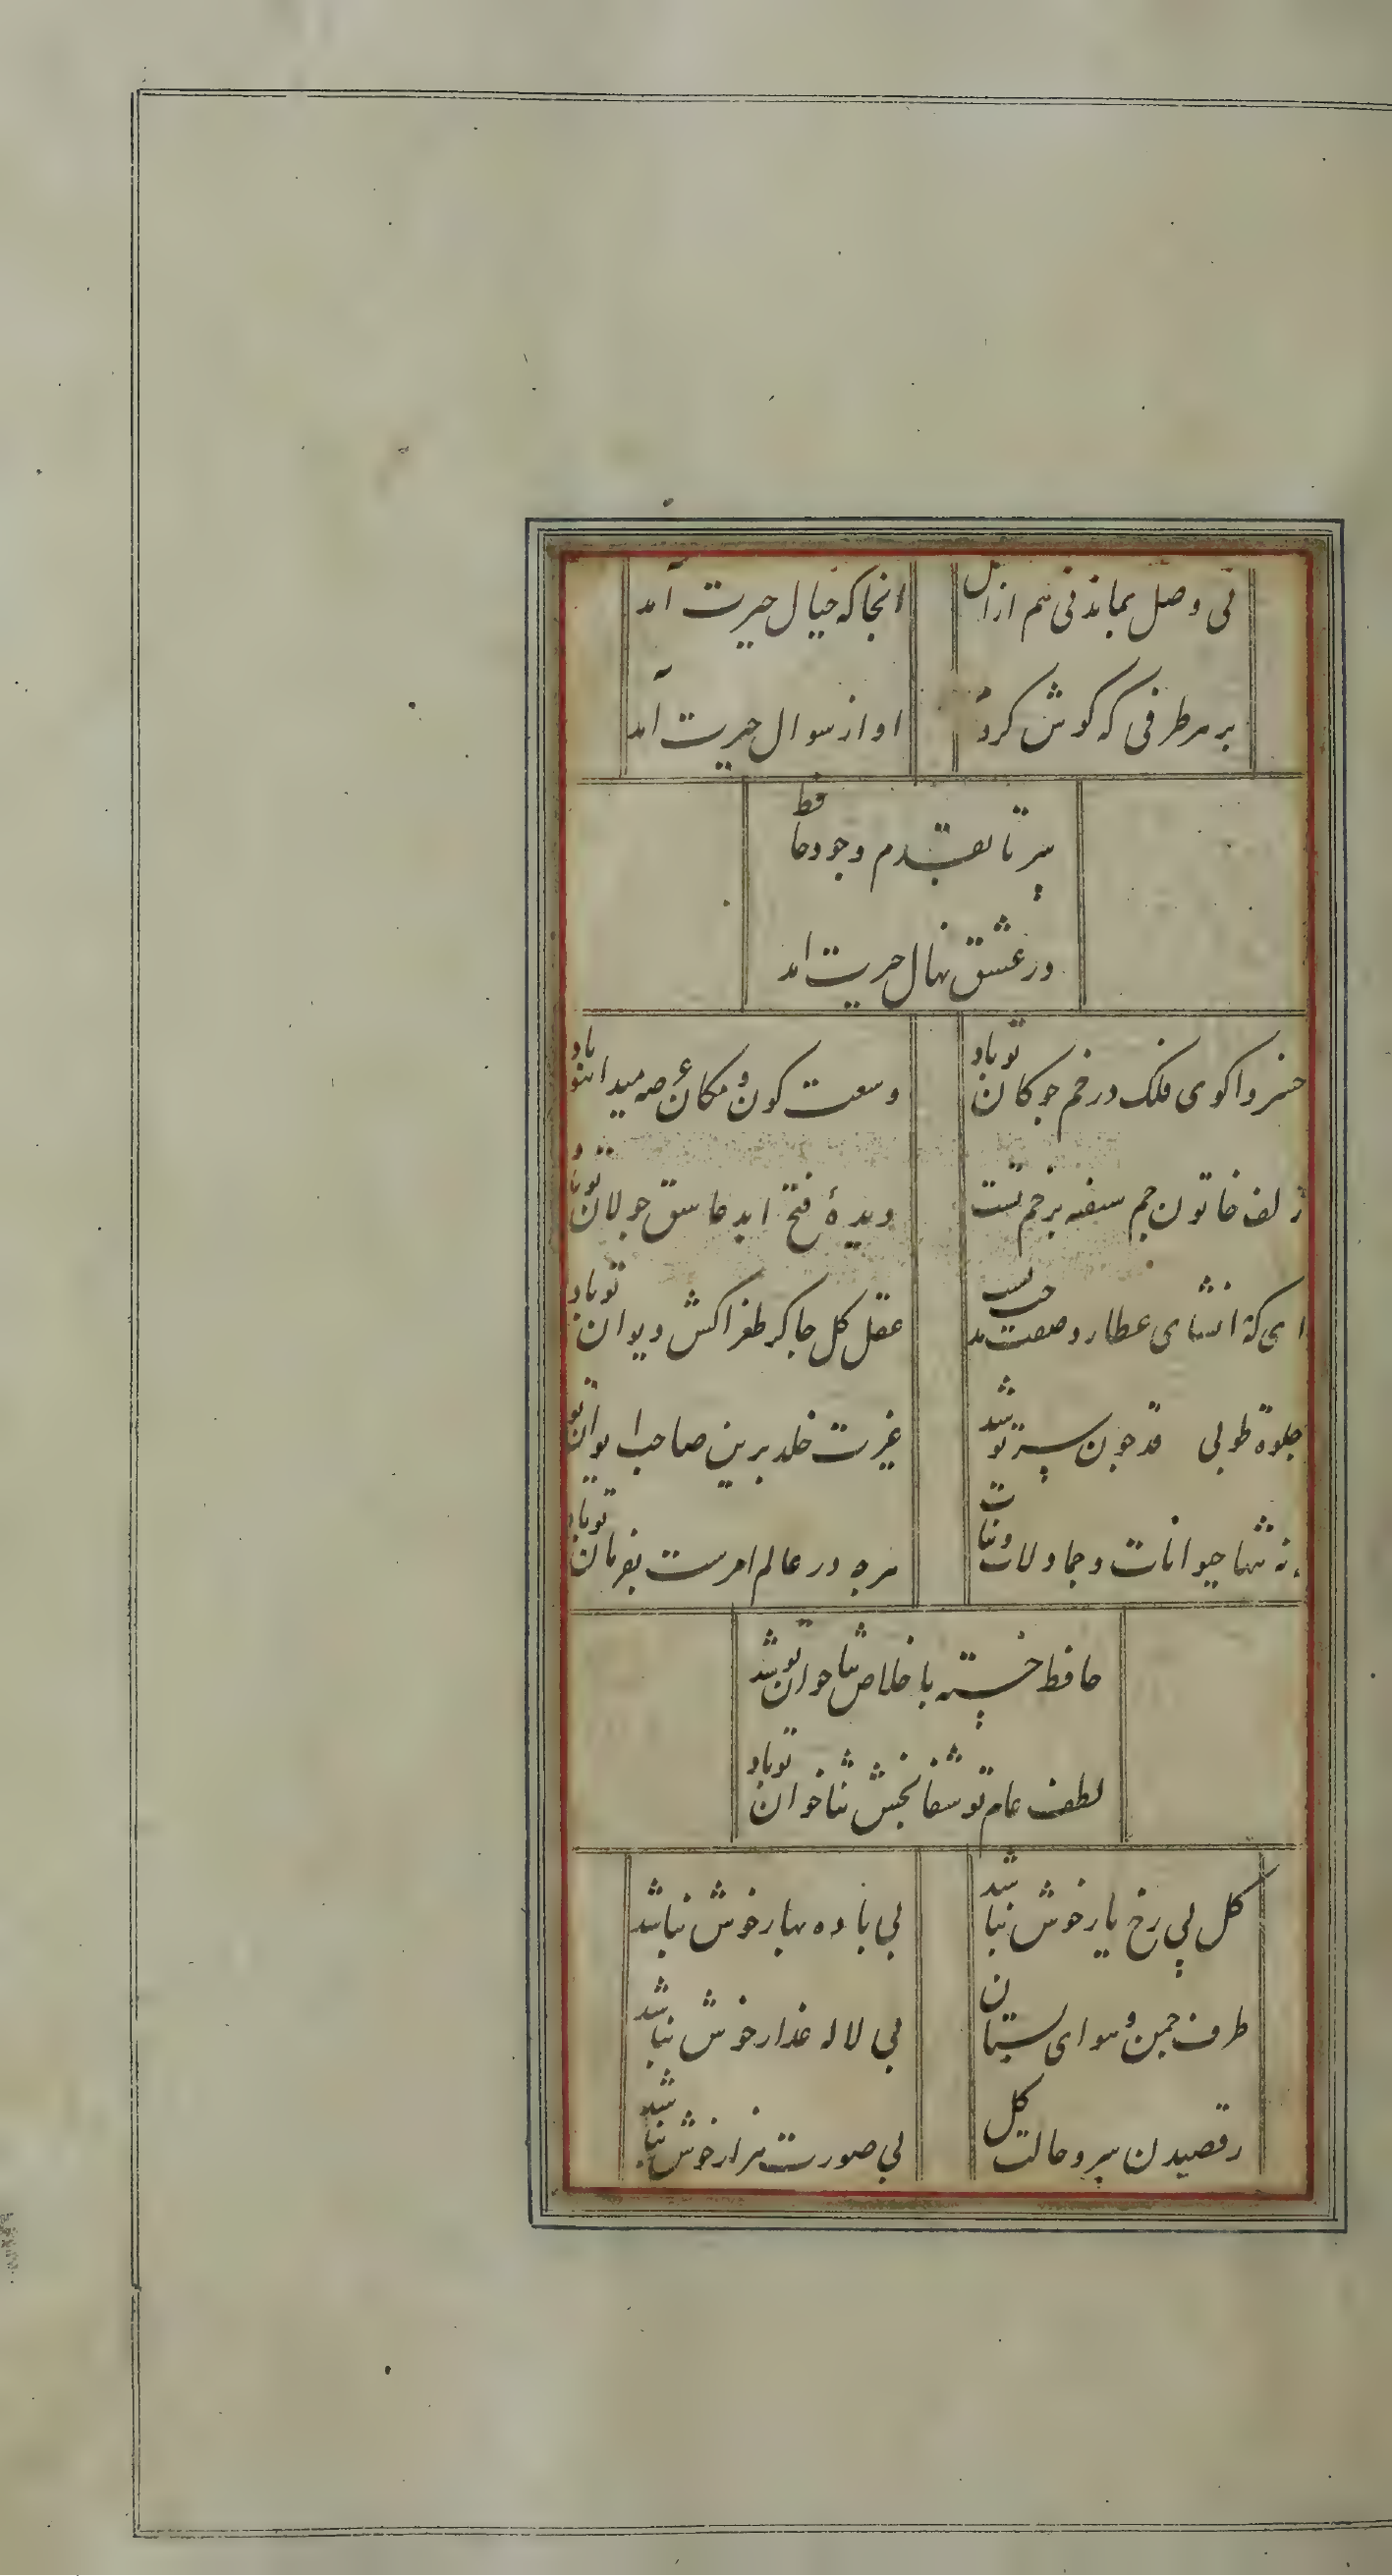 نی وصل بماند نی هم ازل انجا که خیال حیرت آمد
بر هر طرفی که گوش کردم اواز سوال حیرت آمد
سر تا بقدم وجود حافظ
در عشق نهال حیرت امد
خسروا کوی فلک در خم جوکان تو باد وسعت کون و مکان عرصه میدان تو باد
زلف خاتون جم سفته بر خم تست دیدهٔ فتح ابد عاشق جولان تو باد
ای که انشای عطارد صفت عقل کل جاکر طغرا کش دیوان تو باد
جلوه طوبی قد جون سرو تو شد غیرت خلد برین صاحب ایوان تو
نه تنها حیوانات و جمادات و نبات هر جه در عالم امرست بفرمان تو باد
حافظ خسته باخلاص ثنا خوان تو شد
لطف عام تو شفا بخش ثنا خوان تو باد
کل بی رخ یار خوش نباشد بی باده بهار خوش نباشد
طرف جمن و هوای بستان بی لاله عذار خوش نباشد
رقصیدن سرو حالت کل بی صورت هزار خوش نباشد